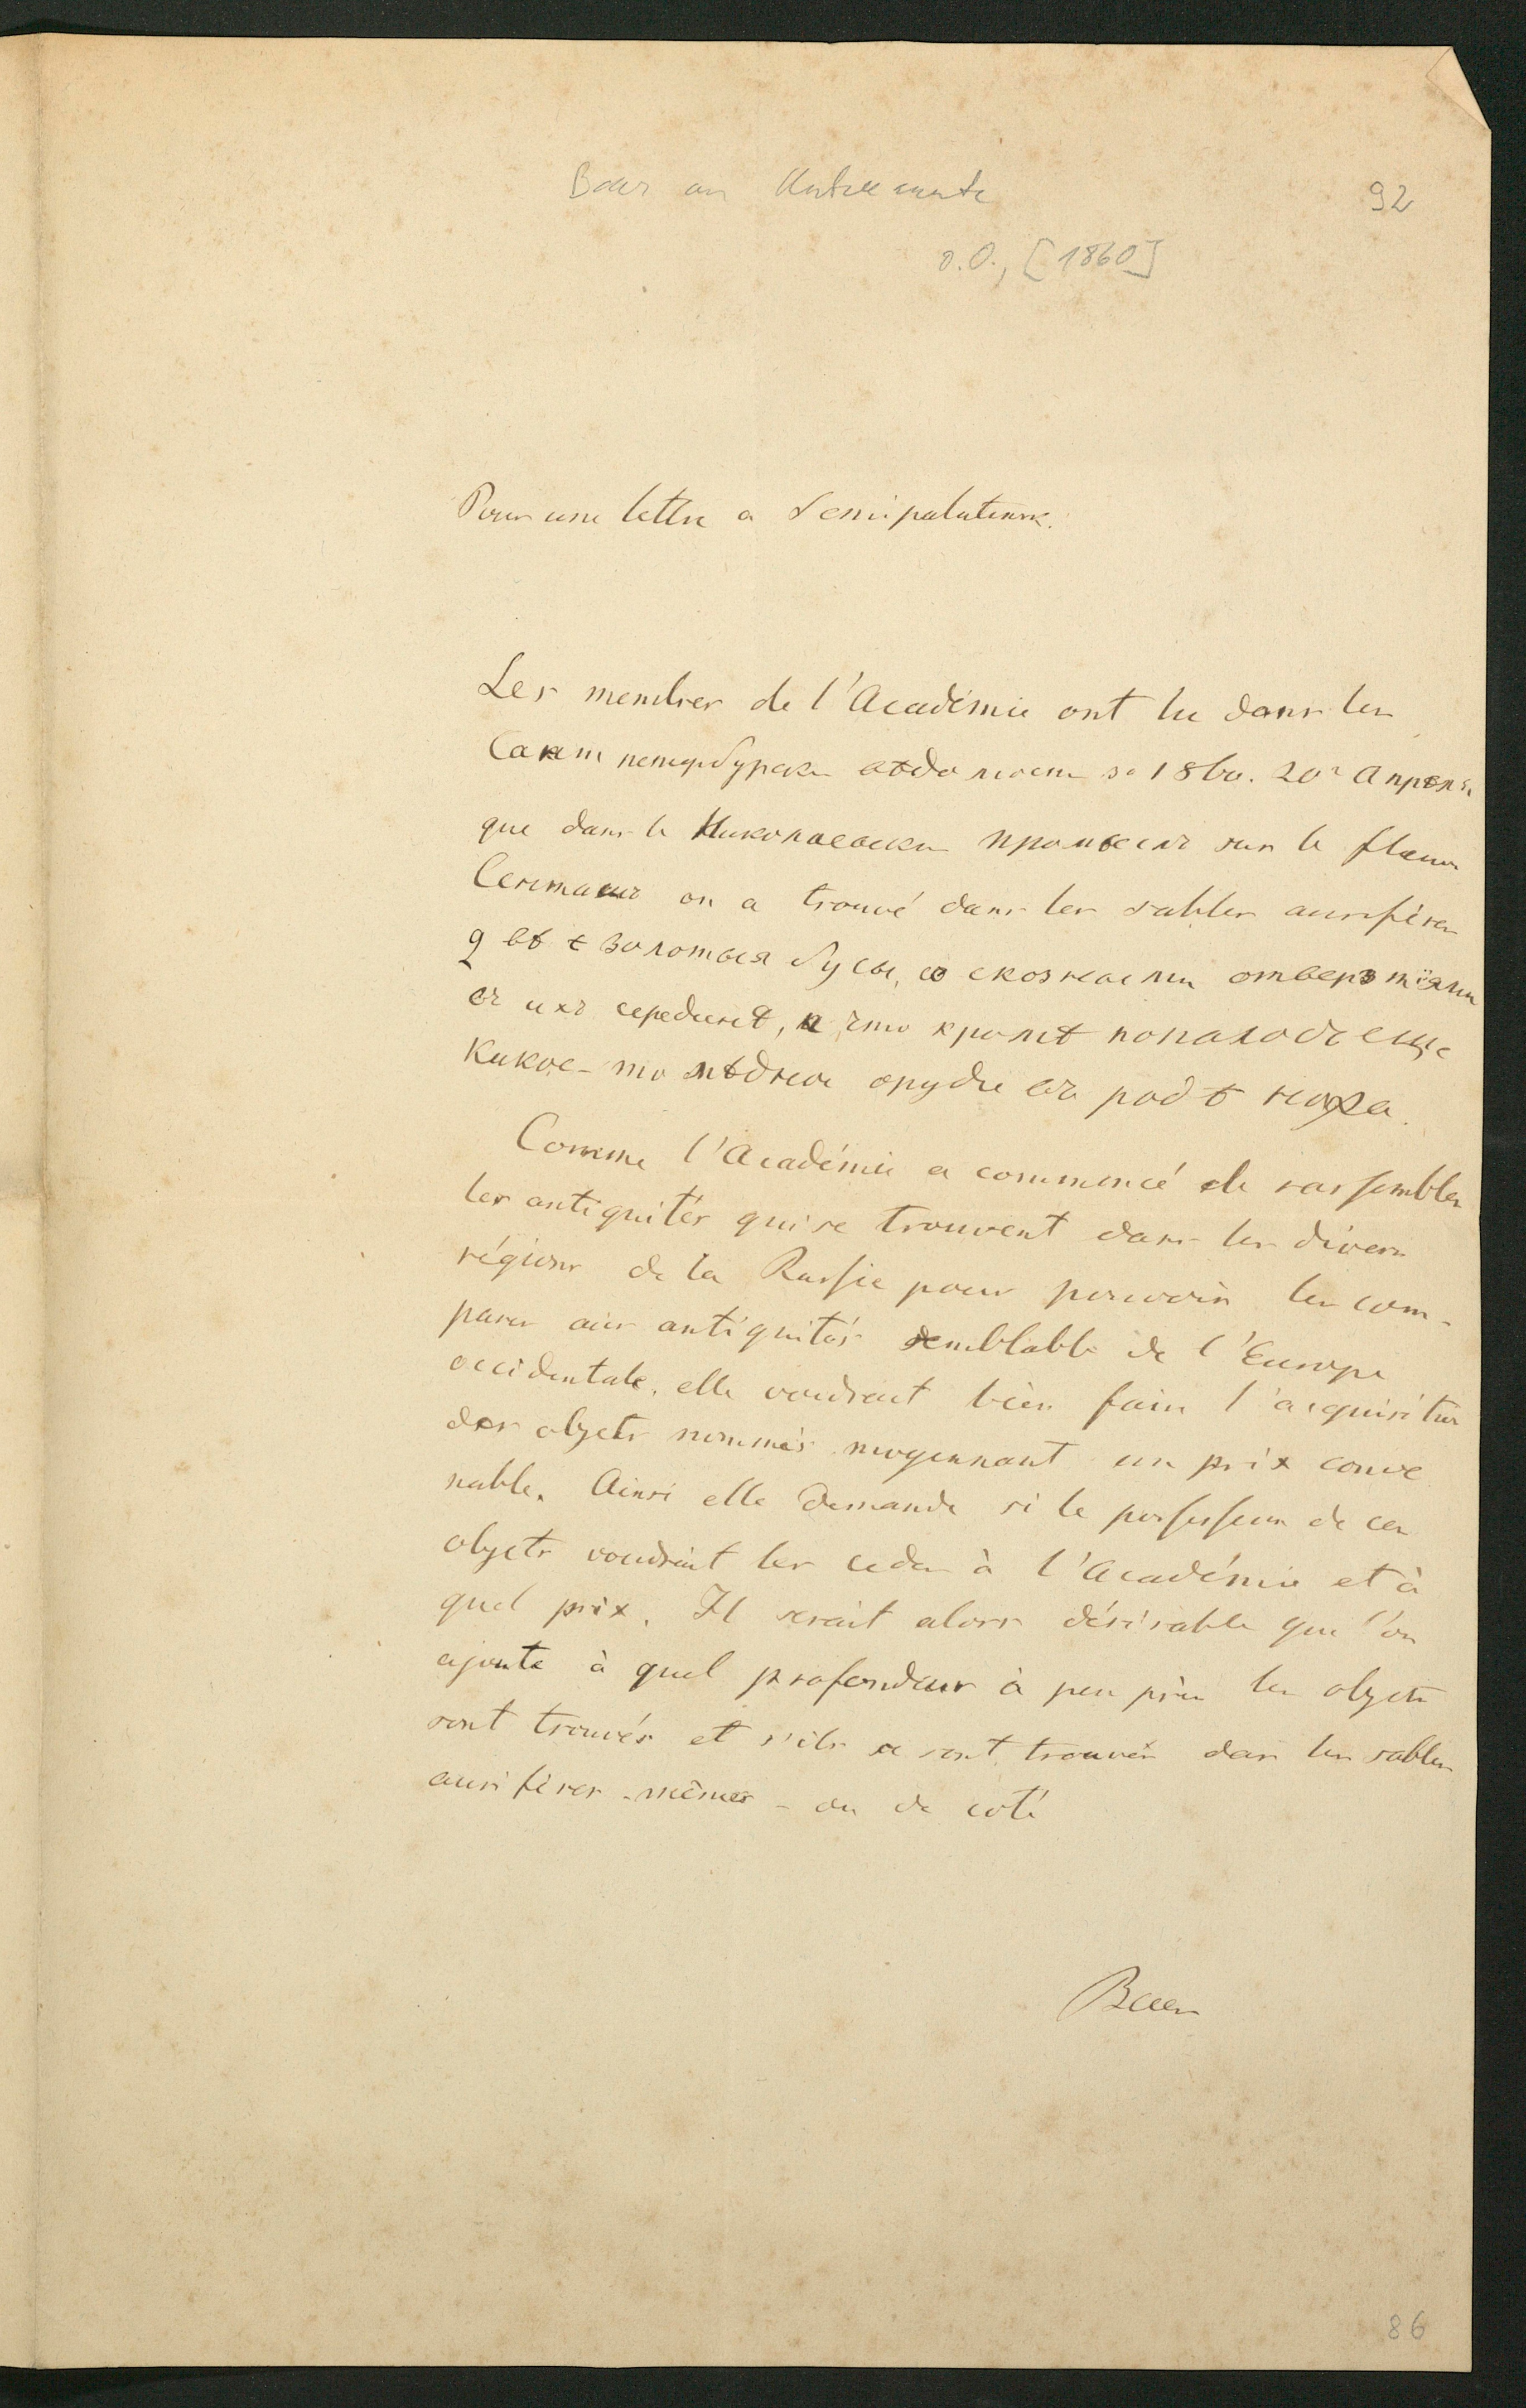 Baer an Unbekannte
92
o. O., [1860]
Pour une lettre a Semipalatinsk.
Les membres de l'Académie ont lu dans les
Санктпетербурски вѣдомости за 1860. 20г Апрѣля
que dans le Николаевски промыслъ sur le fleuve
on a trouvé dans les sables aurifères
двѣ золотыя бусы, со сквозными отверзтіями
въ ихъ серединѣ, и что кромѣ попалось еще
какое-то мѣдное орудіе въ родѣ ножа.
Comme l'Académie a commencé de rassembler
les antiquités qui se trouvent dans les divers
régions de la Russie pour pouvoir les com-
parer aux antiquités semblable de l'Europe
occidentale, elle voudrait bien faire l'acquisition
des objets nommés moyennant un prix conve
nable. Ainsi elle demande si le possesseur de ces
objets voudrait les ceder à l'Académie et à
quel prix. Il serait alors désirable que l'on
ajoute à quel profondeur à peu près les objets
sont trouvés et s'ils se sont trouvés dans les sables
aurifères mêmes - ou de coté
Baer
86